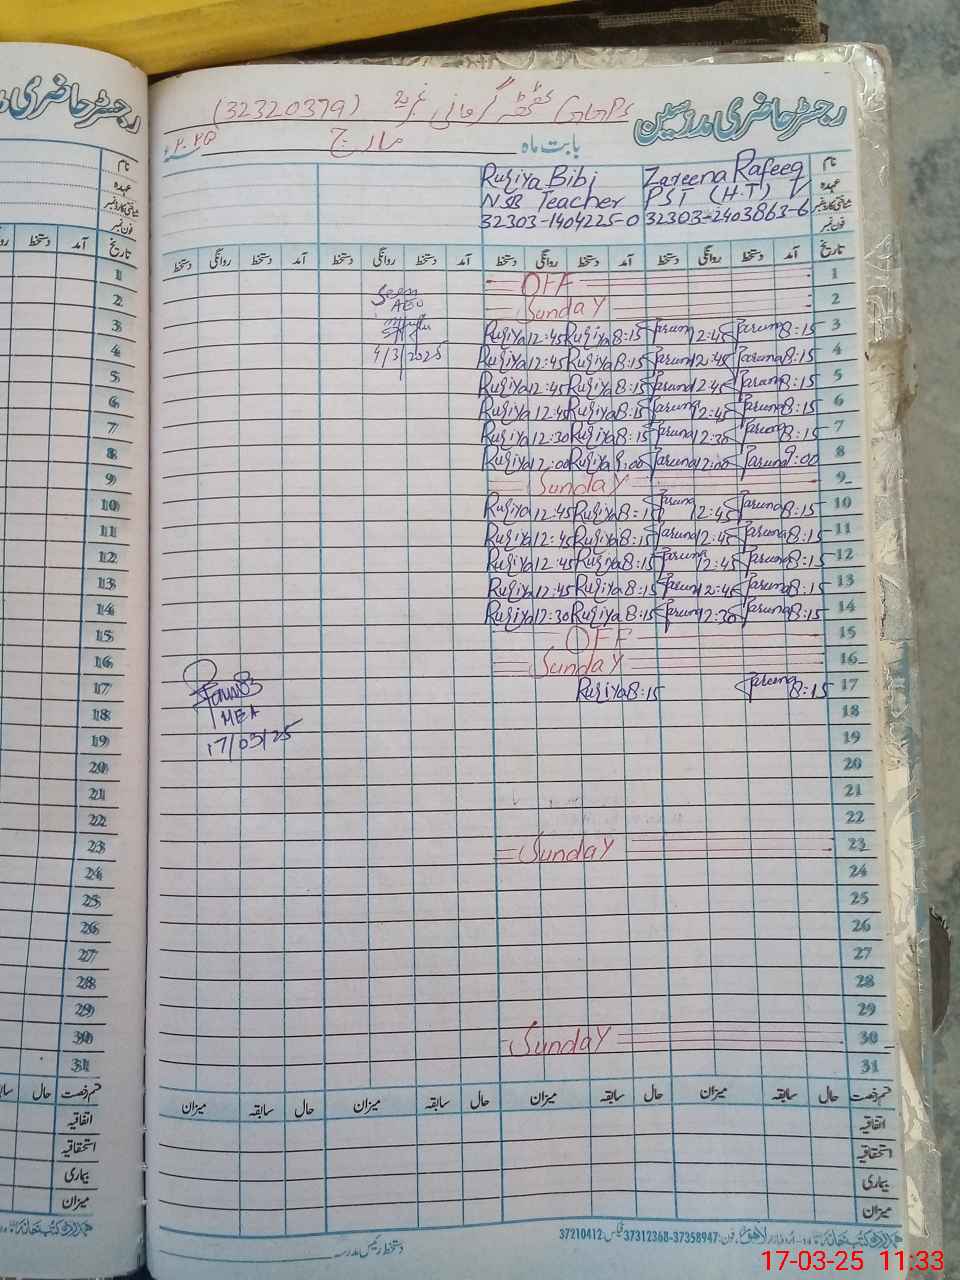 رجسٹر حاضری مدرسین
(32320379)
بابت ماہ مارچ ۲۰۲۵ء
نام Zareena Rafeeq Ruqiya Bibi
عہدہ PST (H.T) NSB Teacher
شناختی کارڈ نمبر 32303-2403863-6 32303-1404225-0
فون نمبر
تاریخ آمد دستخط روانگی دستخط آمد دستخط روانگی دستخط آمد دستخط روانگی دستخط آمد دستخط روانگی دستخط
1 OFF
2 Sunday
3 8:15 Zareena 12:45 Zareena 8:15 Ruqiya 12:45 Ruqiya
4 8:15 Zareena 12:45 Zareena 8:15 Ruqiya 12:45 Ruqiya
5 8:15 Zareena 12:45 Zareena 8:15 Ruqiya 12:45 Ruqiya
6 8:15 Zareena 12:45 Zareena 8:15 Ruqiya 12:45 Ruqiya
7 8:15 Zareena 12:30 Zareena 8:15 Ruqiya 12:30 Ruqiya
8 9:00 Zareena 12:00 Zareena 9:00 Ruqiya 12:00 Ruqiya
9 Sunday
10 8:15 Zareena 12:45 Zareena 8:15 Ruqiya 12:45 Ruqiya
11 8:15 Zareena 12:45 Zareena 8:15 Ruqiya 12:45 Ruqiya
12 8:15 Zareena 12:45 Zareena 8:15 Ruqiya 12:45 Ruqiya
13 8:15 Zareena 12:45 Zareena 8:15 Ruqiya 12:45 Ruqiya
14 8:15 Zareena 12:30 Zareena 8:15 Ruqiya 12:30 Ruqiya
15 OFF
16 Sunday
17 8:15 Zareena 8:15 Ruqiya
18
19
20
21
22
23 Sunday
24
25
26
27
28
29
30 Sunday
31
Seen
AEO
4/3/2025
MEA
17/03/25
قسم رخصت حال سابقہ میزان حال سابقہ میزان حال سابقہ میزان حال سابقہ میزان
اتفاقیہ
استحقاقیہ
بیماری
میزان
فون: 37358947-37312368 فیکس: 37210412
دستخط رئیس مدرسہ
رجسٹر حاضری
نام
عہدہ
شناختی کارڈ نمبر
فون نمبر
تاریخ آمد دستخط
1
2
3
4
5
6
7
8
9
10
11
12
13
14
15
16
17
18
19
20
21
22
23
24
25
26
27
28
29
30
31
قسم رخصت حال
اتفاقیہ
استحقاقیہ
بیماری
میزان
17-03-25 11:33